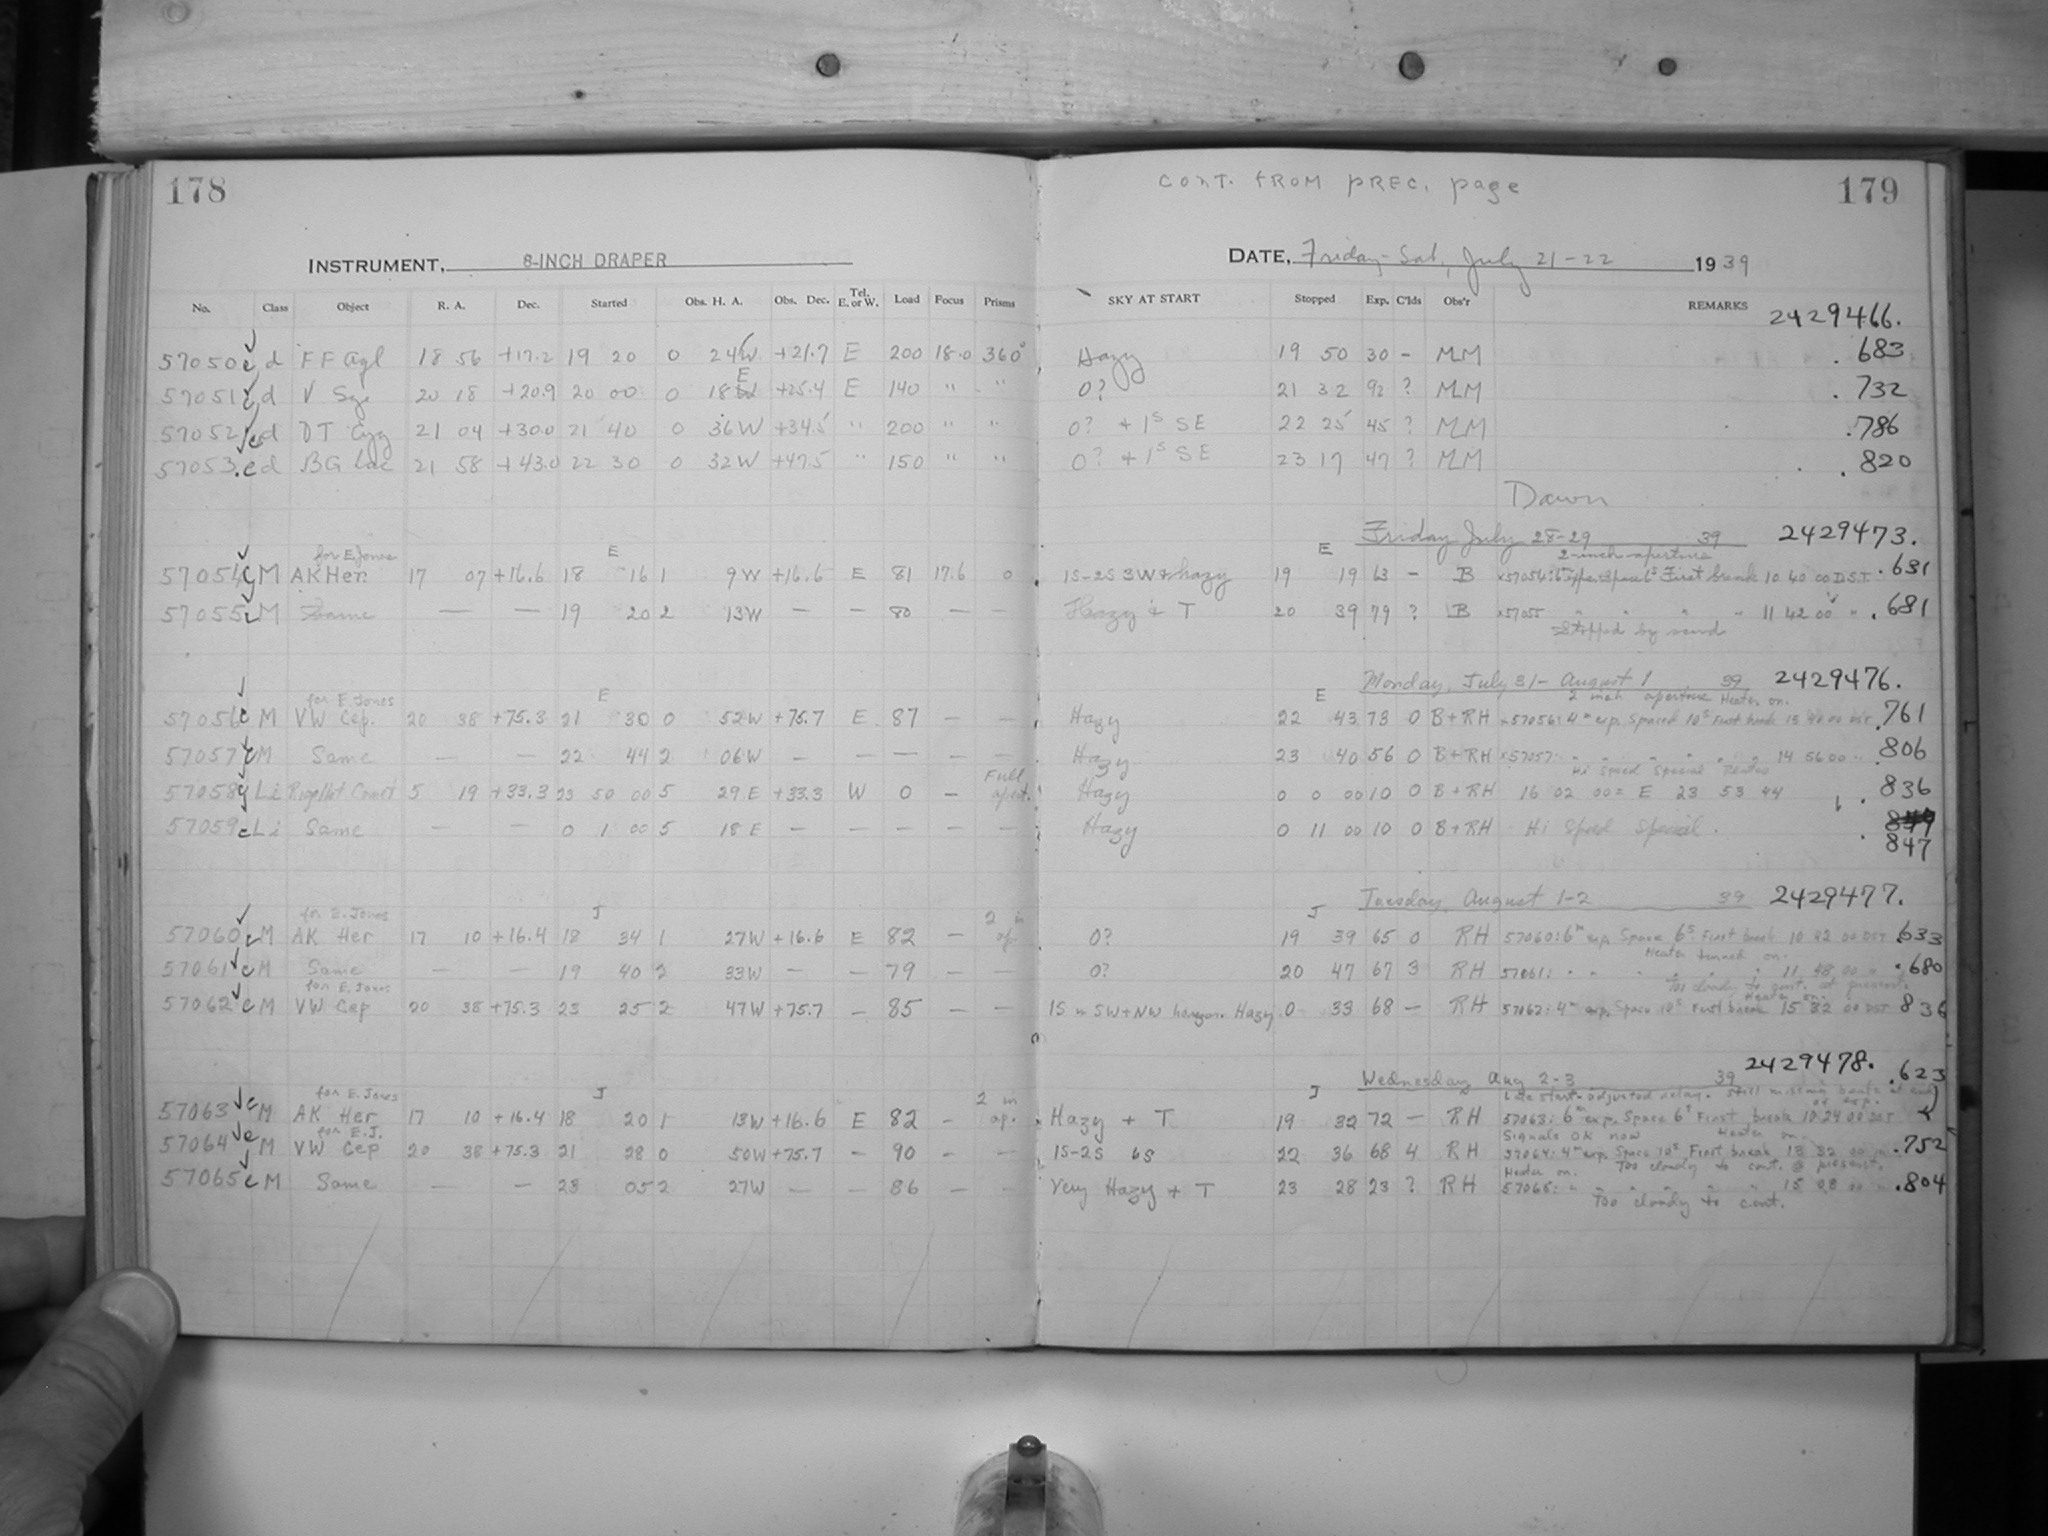 178
cont. from prec. page 179
INSTRUMENT, 8-INCH DRAPER DATE, Friday-Sat, July 21-22 1939
No. Class Object R. A. Dec. Started Obs. H. A. Obs. Dec. Tel. E. or W. Load Focus Prisms SKY AT START Stopped Exp. C'lds Obs'r REMARKS 2429466.
57050 c d FF Aql 18 56 +17.2 19 20 0 24 W +21.7 E 200 18.0 360° Hazy 19 50 30 - MM .683
57051 c d V Sge 20 18 +20.9 20 00 0 18 E +25.4 E 140 " " 0? 21 32 92 ? MM .732
57052 c d DT Cyg 21 04 +30.0 21 40 0 36W +34.5 " 200 " " 0? + 1S SE 22 25 45 ? MM .786
57053 c d BG Lac 21 58 +43.0 22 30 0 32W +47.5 " 150 " " 0? + 1S SE 23 17 47 ? MM .820
Dawn
Friday July 28-29 39 2429473.
for E. Jones E E 2-inch aperture
57054 M AK Her. 17 07 +16.6 18 16 1 9W +16.6 E 81 17.6 0 1S-2S 3W + hazy 19 19 63 - B x57054: First break 10 40 00 D.S.T. .631
57055 c M Same — — 19 20 2 13W — — 80 — — Hazy + T 20 39 79 ? B x57055 " " " " 11 42 00 " .681
Stopped by
Monday, July 31- August 1 39 2429476.
for E. Jones E E 2 inch aperture Heater on.
57056 c M VW Cep. 20 38 +75.3 21 30 0 52W +75.7 E 87 — — Hazy 22 43 73 0 B+RH x57056: 4m exp. Spaced 10s First break 13 40 00 DST .761
57057 c M Same — — 22 44 2 06W — — — — — Hazy 23 40 56 0 B+RH x57057: " " " " " 14 56 00 " .806
Full apert. Hi Speed Special Plates
57058 Li Rigollet Comet 5 19 +33.3 23 50 00 5 29 E +33.3 W 0 — Hazy 0 0 00 10 0 B+RH 16 02 00 = E 23 53 44 .836
57059 c Li Same — — 0 1 00 5 18 E — — — — — Hazy 0 11 00 10 0 B+RH Hi Speed Special.
.847
Tuesday, August 1-2 39 2429477.
for E. Jones J 2 in ap. J
57060 c M AK Her 17 10 +16.4 18 34 1 27W +16.6 E 82 — 0? 19 39 65 0 RH 57060: 6m exp. Space 6s. First break 10 42 00 DST .633
Heater turned on.
57061 c M Same — — 19 40 2 33W — — 79 — — 0? 20 47 67 3 RH 57061: " " " " 11 48 00 " .680
for E. Jones Too cloudy to cont. at present. Heater on.
57062 c M VW Cep 20 38 +75.3 23 25 2 47W +75.7 — 85 — — 1S in SW + NW horizon. Hazy 0 33 68 — RH 57062: 4m exp. Space 10s First break 15 32 00 DST .836
2429478.
Wednesday Aug 2-3 39 .623
for E. Jones J 2 in ap. J Late start- adjusted relay. Still missing beats at end of exp.
57063 c M AK Her 17 10 +16.4 18 20 1 13W +16.6 E 82 - Hazy + T 19 32 72 — RH 57063: 6m exp. Space 6s First break 10 24 00 DST
for E.J. Signals OK now Heater on
57064 c M VW Cep 20 38 +75.3 21 28 0 50W +75.7 — 90 — — 1S-2S 6S 22 36 68 4 RH 57064: 4m exp. Space 10s First break 13 32 00 " .752
Heater on. Too cloudy to cont. @ present.
57065 c M Same — — 23 05 2 27W — — 86 — — Very Hazy + T 23 28 23 ? RH 57065: " " " " 15 08 00 " .804
Too cloudy to cont.